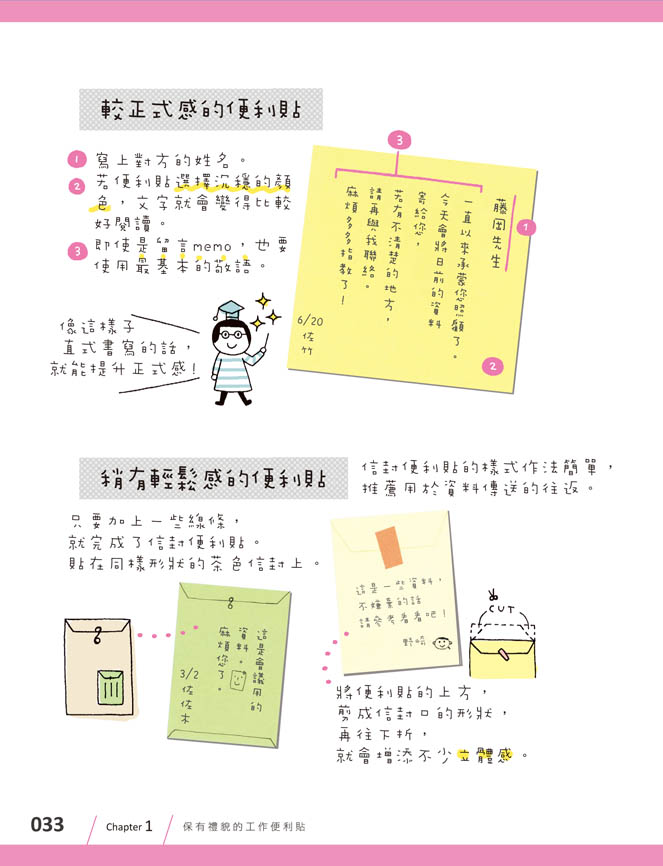 較正式感的便利貼
1 寫上對方的姓名。
2 若便利貼選擇沉穩的顏
色，文字就會變得比較
好閱讀。
3 即使是留言memo，也要
使用最基本的敬語。
像這樣子
直式書寫的話，
就能提升正式感！
3
1
2
藤岡先生
一直以來承蒙您照顧了。
今天會將日前的資料
寄給您，
若有不清楚的地方，
請再與我聯絡。
麻煩多多指教了！
6/20
佐竹
稍有輕鬆感的便利貼
信封便利貼的樣式作法簡單，
推薦用於資料傳送的往返。
只要加上一些線條，
就完成了信封便利貼。
貼在同樣形狀的茶色信封上。
這是會議用的
資料。
麻煩您了。
3/2
佐佐木
這是一些資料，
不嫌棄的話
請參考看看吧！
野崎
CUT
將便利貼的上方，
剪成信封口的形狀，
再往下折，
就會增添不少立體感。
033
Chapter 1
保有禮貌的工作便利貼